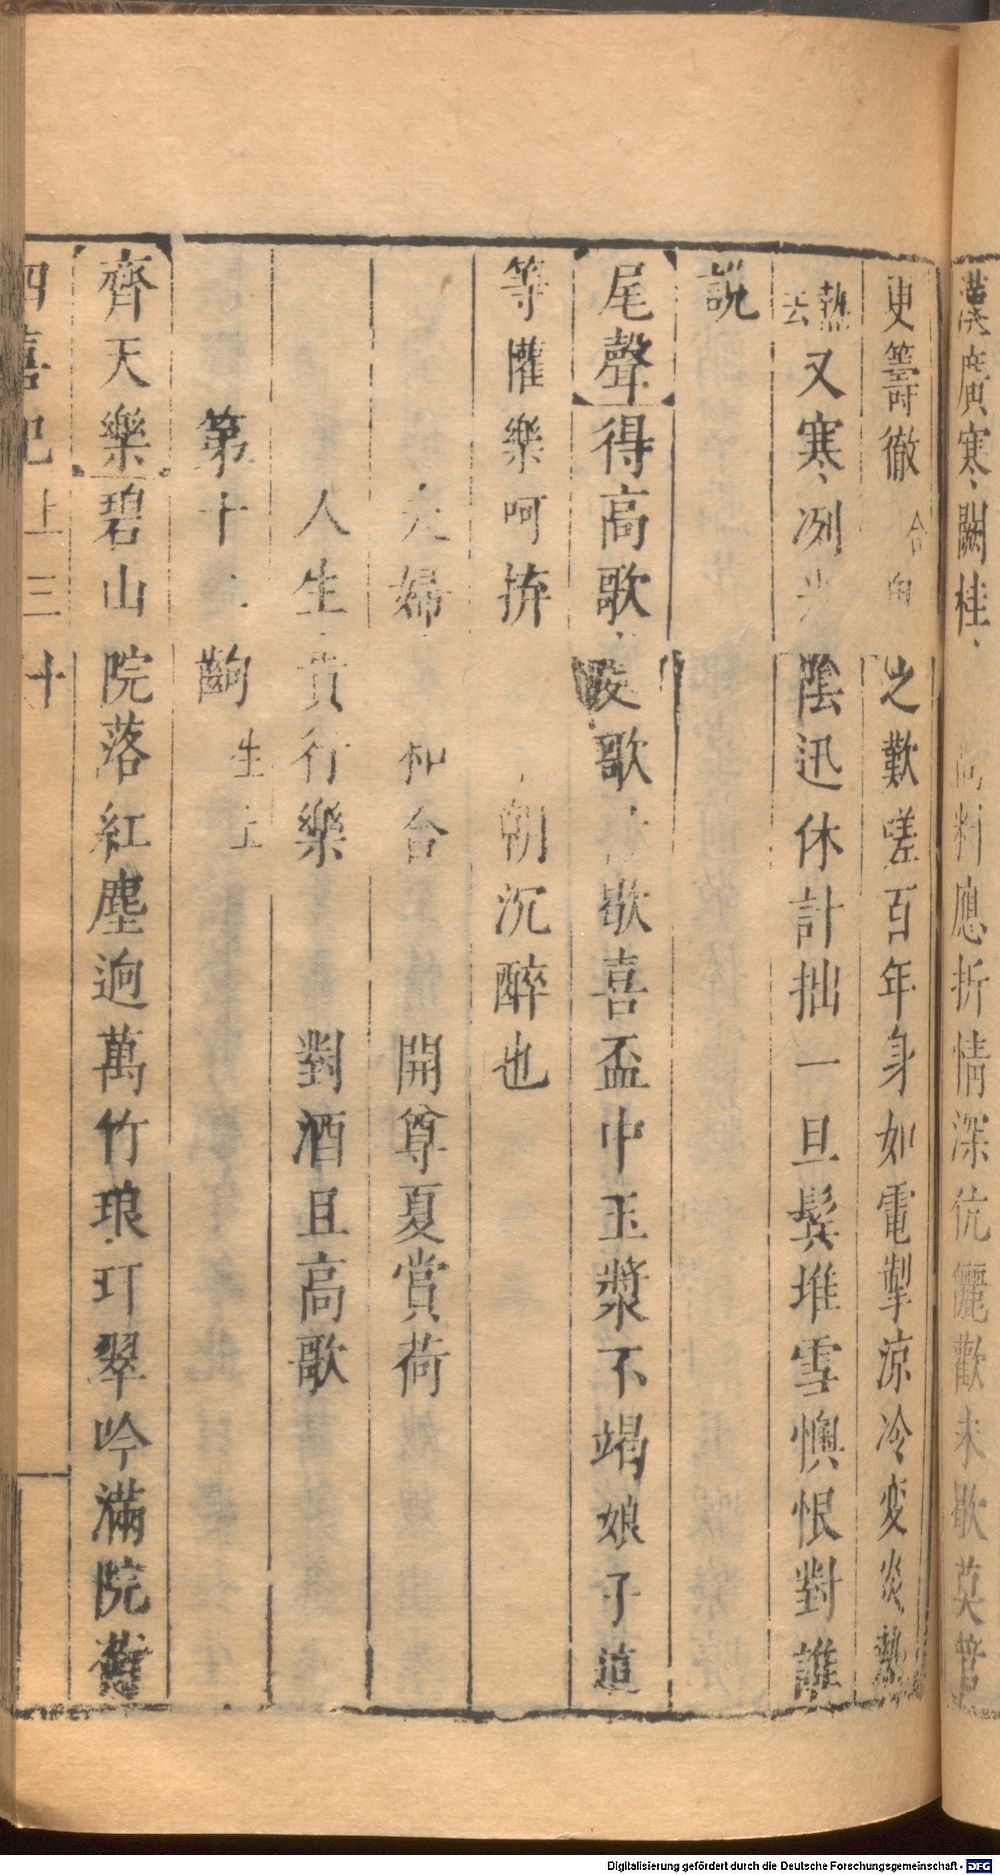 漢廣寒闕桂 料應折情深伉儷歡未歇莫管
更籌徹 合 之歎嗟百年身如電掣涼冷変炎熱
熱去又寒冽 陰迅休計拙一旦鬂堆雪懊恨對誰
說
尾聲得高歌 歌 歇喜盃中玉漿不竭娘子道
等懽樂呵拚 朝沉醉也
夫婦 和合 開尊夏賞荷
人生貴行樂 對酒且高歌
第十二齣 生上
齊天樂碧山院落紅塵迥萬竹琅玕翠吟滿院
四喜記 上 三十
Digitalisierung gefördert durch die Deutsche Forschungsgemeinschaft - DFG